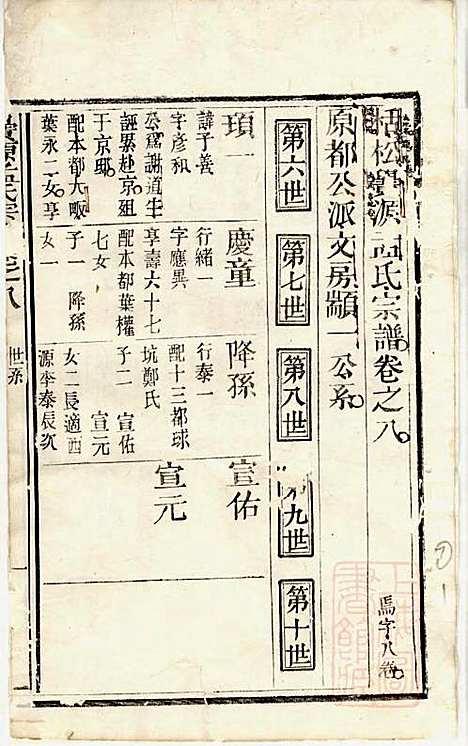 括松𩔖源𠮷氏宗譜卷之八
馬字八卷
原都公派文房顓一公系
第六世
第七世
第八世
第九世
第十世
頊一
慶童
降孫
宣佑
諱子善
行緒一
行泰一
宣元
字彥和
字應異
配十三都球
公爲謝道生
享壽六十七
坑鄭氏
誣累赴京殂
配本都葉權
子二 宣佑
于京邸
七女
宣元
配本都大畈
子一 降孫
女二長適西
葉永二女享
女一
源李奉辰次
世系